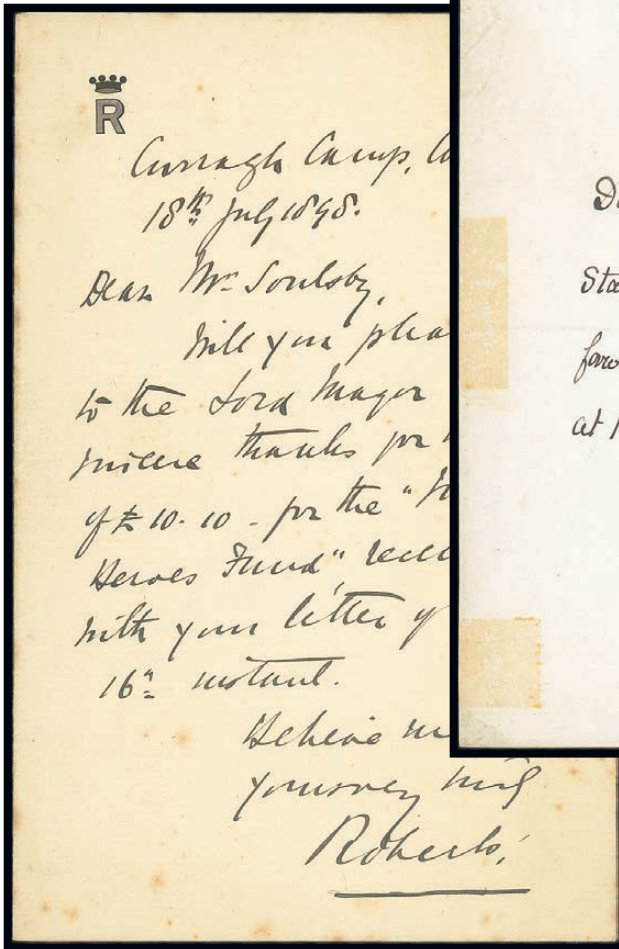 R
Curragh Camp, Co
18th July 1898.
Dear Mr Soulsby,
Will you plea
to the Lord Mayor
sincere thanks for
of £10.10 - for the "
Heroes Fund" rece
with your letter of
16th instant.
Believe m
yours very truly
Roberts.
D
Sta
forw
at